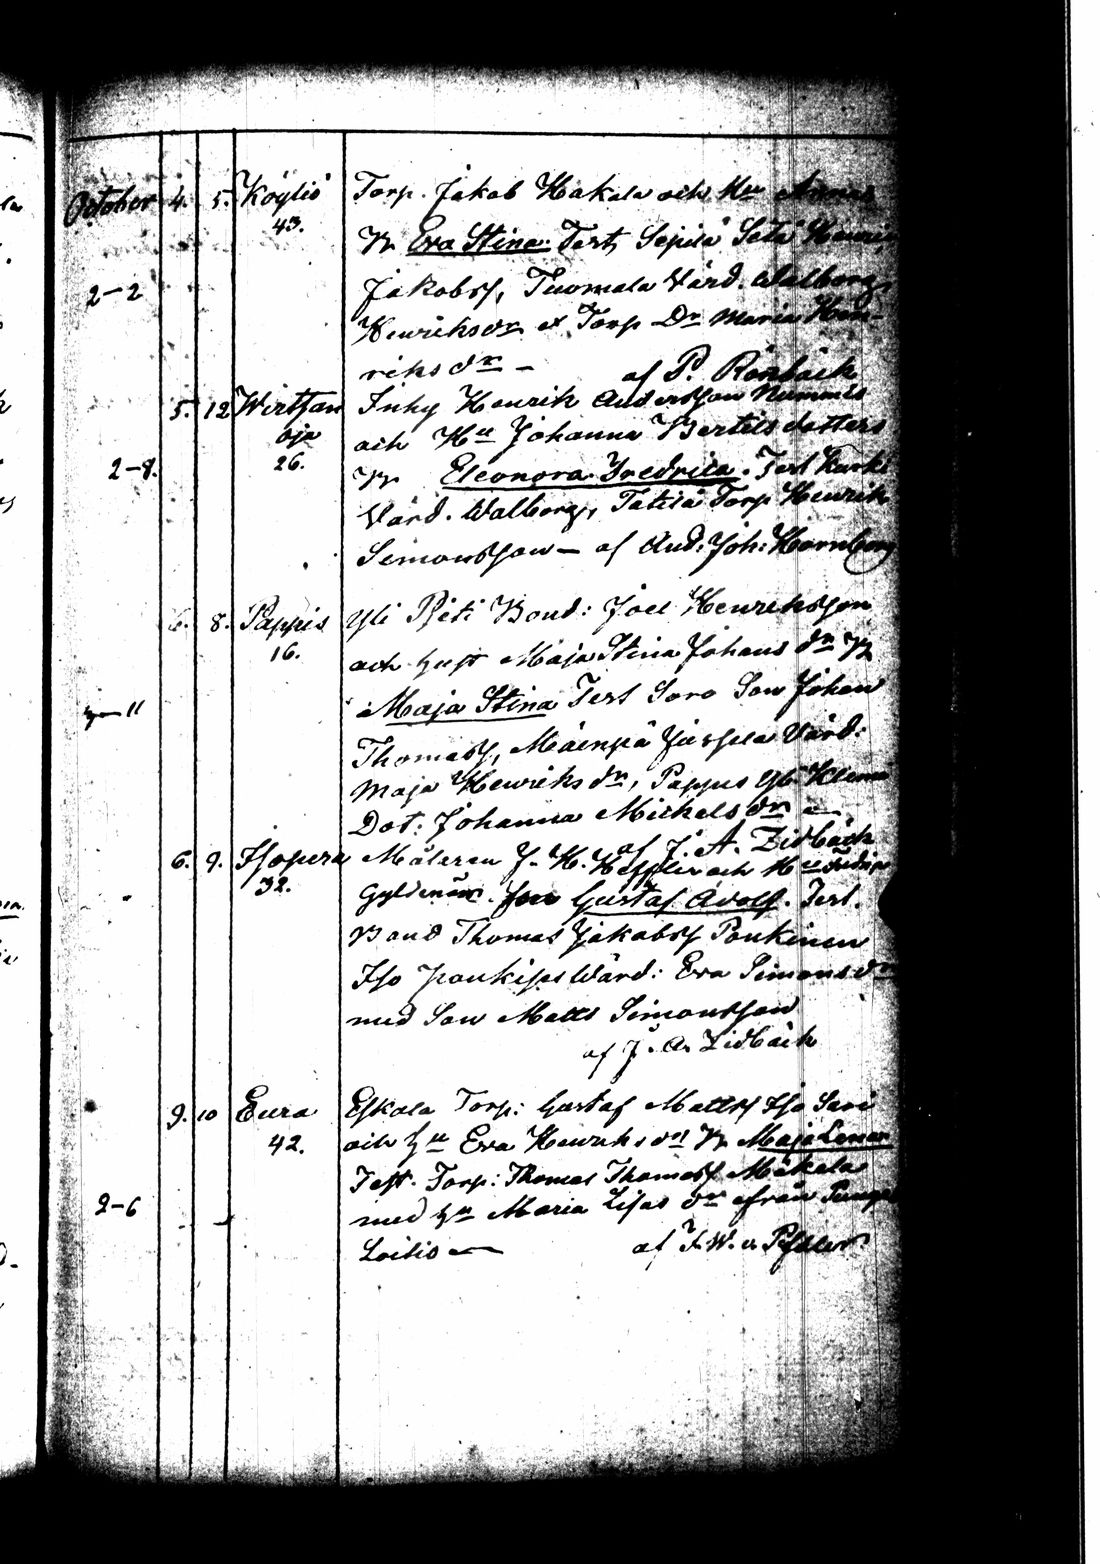 October 4. 5. Köyliö Torp. Jakob Hakala och Hu Annas
43. Br Eva Stina. Test, Sepilä Seta Henric
2-2 Jakobss, Tuomala Värd. Walborg,
Henriksdr et Torp Dr Maria Hen-
riks dr — af P. Rönbäck
5. 12 Wirtsan Inhy Henrik Andersson Nummis
oja och Hu Johanna Bertils dotters
2-8. 26. Br Eleonora Fredrica. Test Kurki
Värd. Walborg, Tatila Torp Henrik
Simonsson — af And: Joh: Hornborg
6. 8. Pappis Yli Pjeti Bond: Joel Henriksson
16. och hust Maja Stina Johans dr Br
11 Maja Stina Test Soro Son Johan
Thomass, Mäenpä Värd:
Maja Henriks dr, Pappus Yli
Dot: Johanna Mickels dr —
af J. A. Zidbäck
6. 9. Isopera Målaren J. H. och Hu
32. Gyldenär. Gustaf Adolf. Test.
Bond Thomas Jakobss Ponkinen
Iso Värd: Eva Simons dr
med Son Matts Simonsson
af J. A. Zidbäck
9. 10 Eura Eskola Torp: Gustaf Mattss Iso Sari
42. och Hu Eva Henriks dr Br Maja Lena
Test. Torp: Thomas Thomass Mäkelä
2-6 med hu Maria Lisas dr ifrån
Loitio — af F. W. v. Pfaler